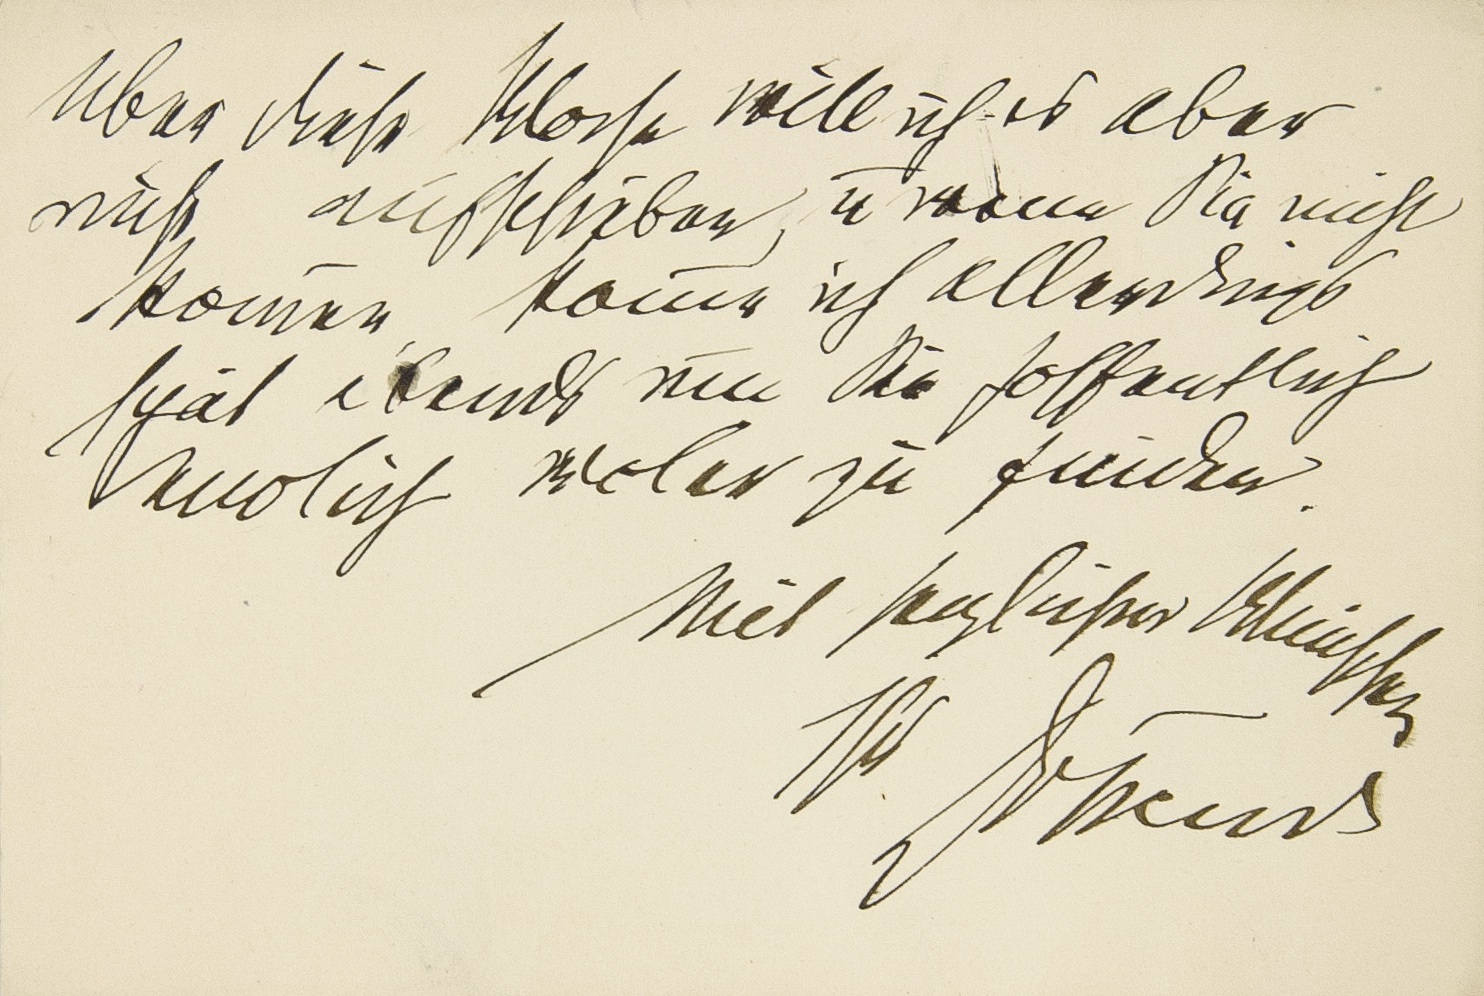 Über diese Woche will ich es aber
nicht aufschieben, u wenn Sie nicht
kom̄en, kom̄e ich allerdings
spät abends um Sie hoffentlich
endlich wohler zu finden.
Mit herzlichen Wünschen
Ihr